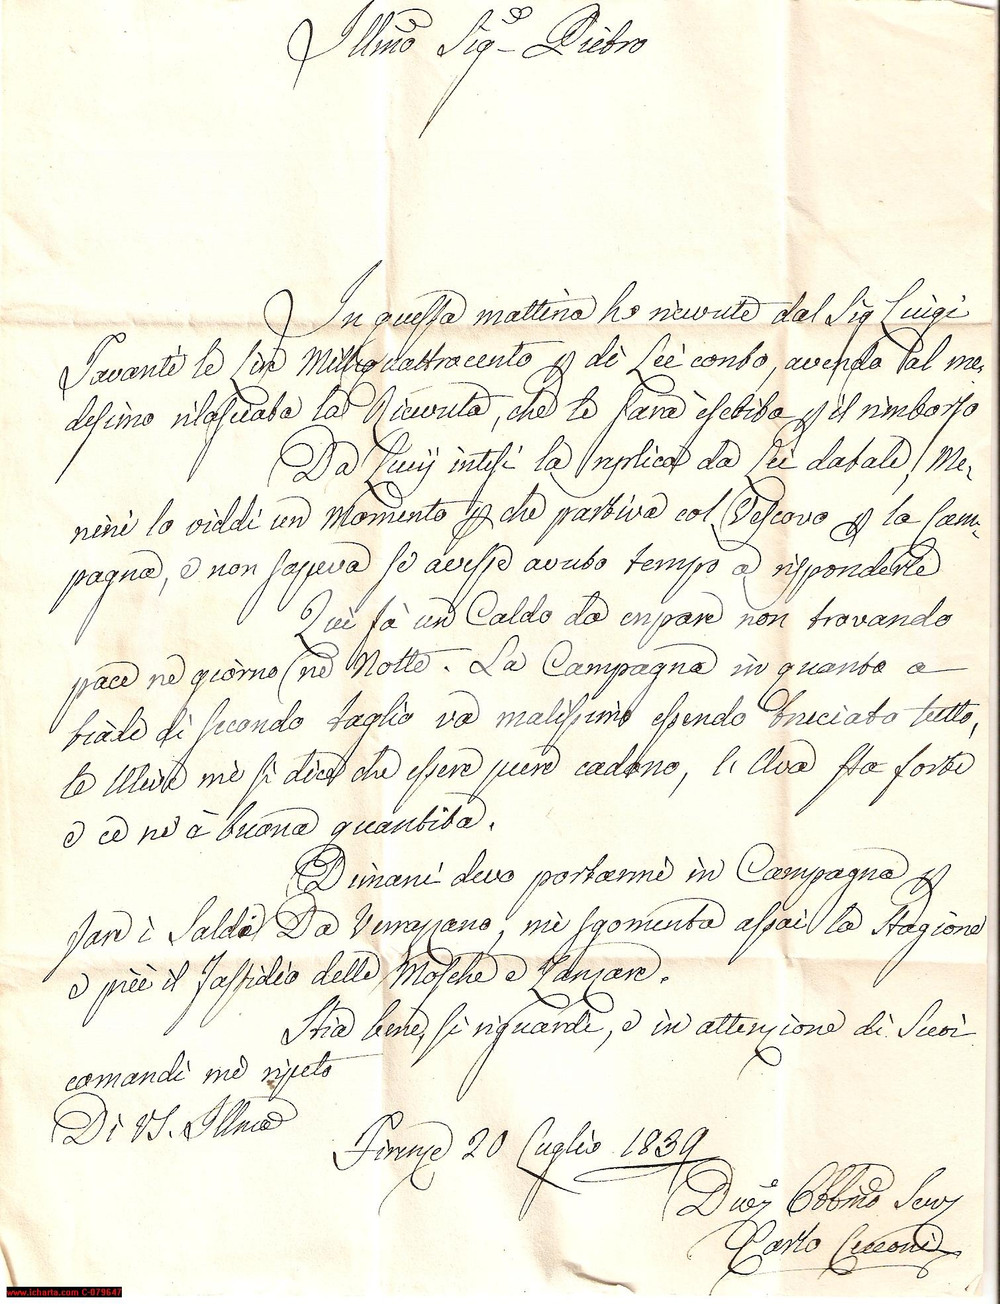 Illmo Sig.e Pietro
In questa mattina ho ricevute dal Sig Luigi
Tavanti le Lire Millequattrocento p di Lei conto, avendo al me-
desimo rilasciata la Ricevuta, che le sarà esebita p il rimborso
Da intesi la replica da Lei datale, Me-
nini lo viddi un Momento p che partiva col Vescovo p la Cam-
pagna, e non sapeva se avesse avuto tempo a risponderle
Qui fà un Caldo da crepare non trovando
pace ne giorno ne Notte. La Campagna in quanto a
biade di secondo taglio va malissimo essendo bruciato tutto,
le Ulive mi si dice che essere pure cadono, l'Uva sta forte
e ce ne à buona quantità.
Dimani devo portarmi in Campagna p
fare i Saldi Da Verrazzano, mi sgomenta assai la Stagione
e più il Fastidio delle Mosche e Zanzare.
Stia bene, si riguardi, e in attenzione di Suoi
comandi me ripeto
Di VS. Illma
Firenze 20 Luglio 1839
Devmo Obbmo Serv
Carlo
www.icharta.com C-079647